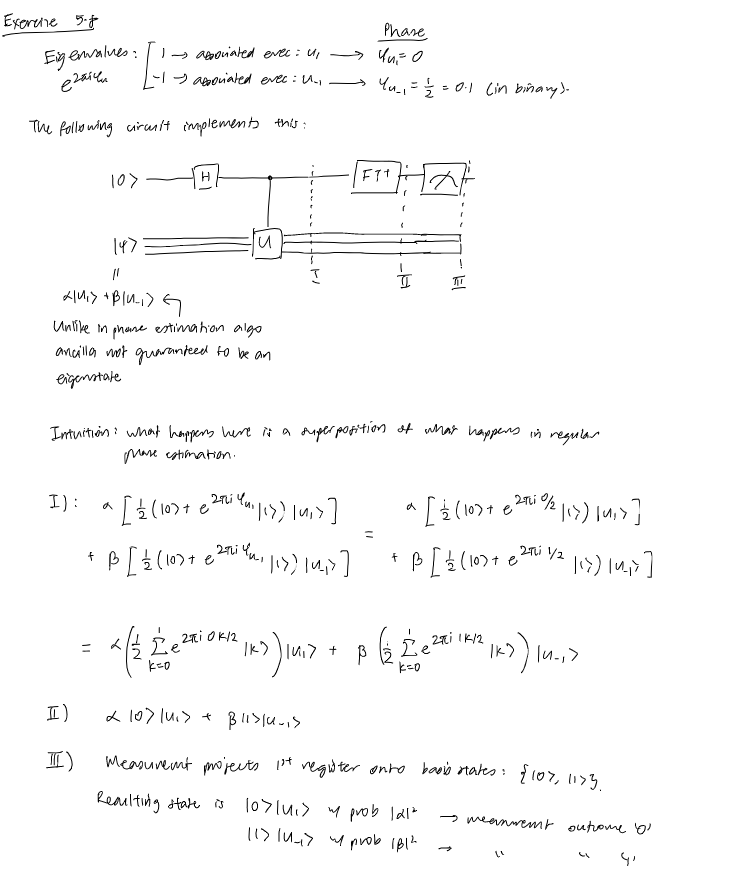 Exercise 5.8
Phase
Eigenvalues: [ 1 → associated evec: u₁ → φ_u₁ = 0
e^{2πiφ_u} [ -1 → associated evec: u₋₁ → φ_u₋₁ = 1/2 = 0.1 (in binary).
The following circuit implements this:
|0> H FT†
|ψ> U
I II III
||
α|u₁> + β|u₋₁>
Unlike in phase estimation algo
ancilla not guaranteed to be an
eigenstate
Intuition: what happens here is a superposition of what happens in regular
phase estimation.
I): α [ 1/2 (|0> + e^{2πi φ_u₁} |1>) |u₁> ] = α [ 1/2 (|0> + e^{2πi 0/2} |1>) |u₁> ]
+ β [ 1/2 (|0> + e^{2πi φ_u₋₁} |1>) |u₋₁> ] + β [ 1/2 (|0> + e^{2πi 1/2} |1>) |u₋₁> ]
= α ( 1/2 Σ_{k=0}^{1} e^{2πi 0k/2} |k> ) |u₁> + β ( 1/2 Σ_{k=0}^{1} e^{2πi 1k/2} |k> ) |u₋₁>
II) α |0>|u₁> + β |1>|u₋₁>
III) Measurement projects 1st register onto basis states: {|0>, |1>}.
Resulting state is |0>|u₁> w/ prob |α|² → measurement outcome '0'
|1>|u₋₁> w/ prob |β|² → " " '1'